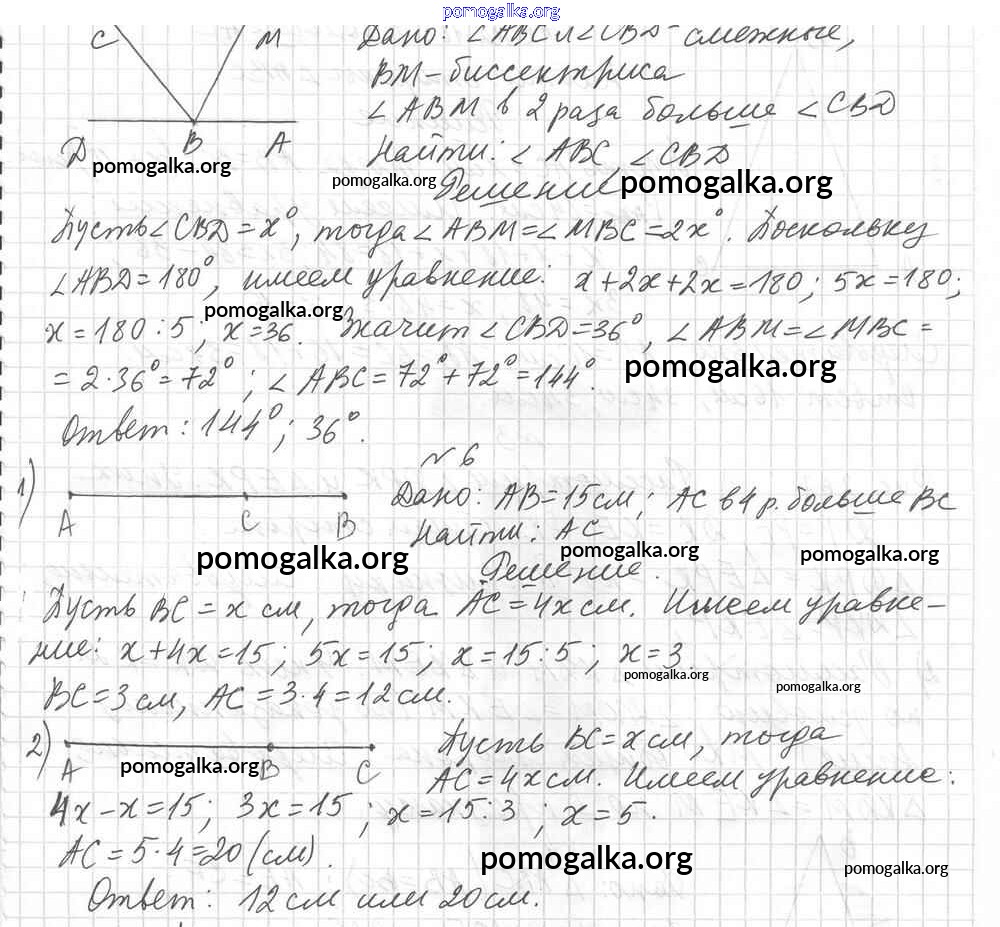 pomogalka.org
C M Дано: ∠ABC и ∠CBD - смежные,
BM - биссектриса
∠ABM в 2 раза больше ∠CBD
D B A Найти: ∠ABC, ∠CBD
pomogalka.org pomogalka.org Решение pomogalka.org
Пусть ∠CBD = x°, тогда ∠ABM = ∠MBC = 2x°. Поскольку
∠ABD = 180°, имеем уравнение: x + 2x + 2x = 180; 5x = 180;
pomogalka.org
x = 180 : 5; x = 36. Значит ∠CBD = 36°, ∠ABM = ∠MBC =
= 2 · 36° = 72°; ∠ABC = 72° + 72° = 144°. pomogalka.org
Ответ: 144°; 36°.
№ 6
1) A C B Дано: AB = 15 см; AC в 4 р. больше BC
Найти: AC
pomogalka.org pomogalka.org pomogalka.org
Решение.
Пусть BC = x см, тогда AC = 4x см. Имеем уравне-
ние: x + 4x = 15; 5x = 15; x = 15 : 5; x = 3.
pomogalka.org pomogalka.org
BC = 3 см, AC = 3 · 4 = 12 см.
2) A B C Пусть BC = x см, тогда
pomogalka.org AC = 4x см. Имеем уравнение:
4x - x = 15; 3x = 15; x = 15 : 3; x = 5.
AC = 5 · 4 = 20 (см).
pomogalka.org pomogalka.org
Ответ: 12 см или 20 см.